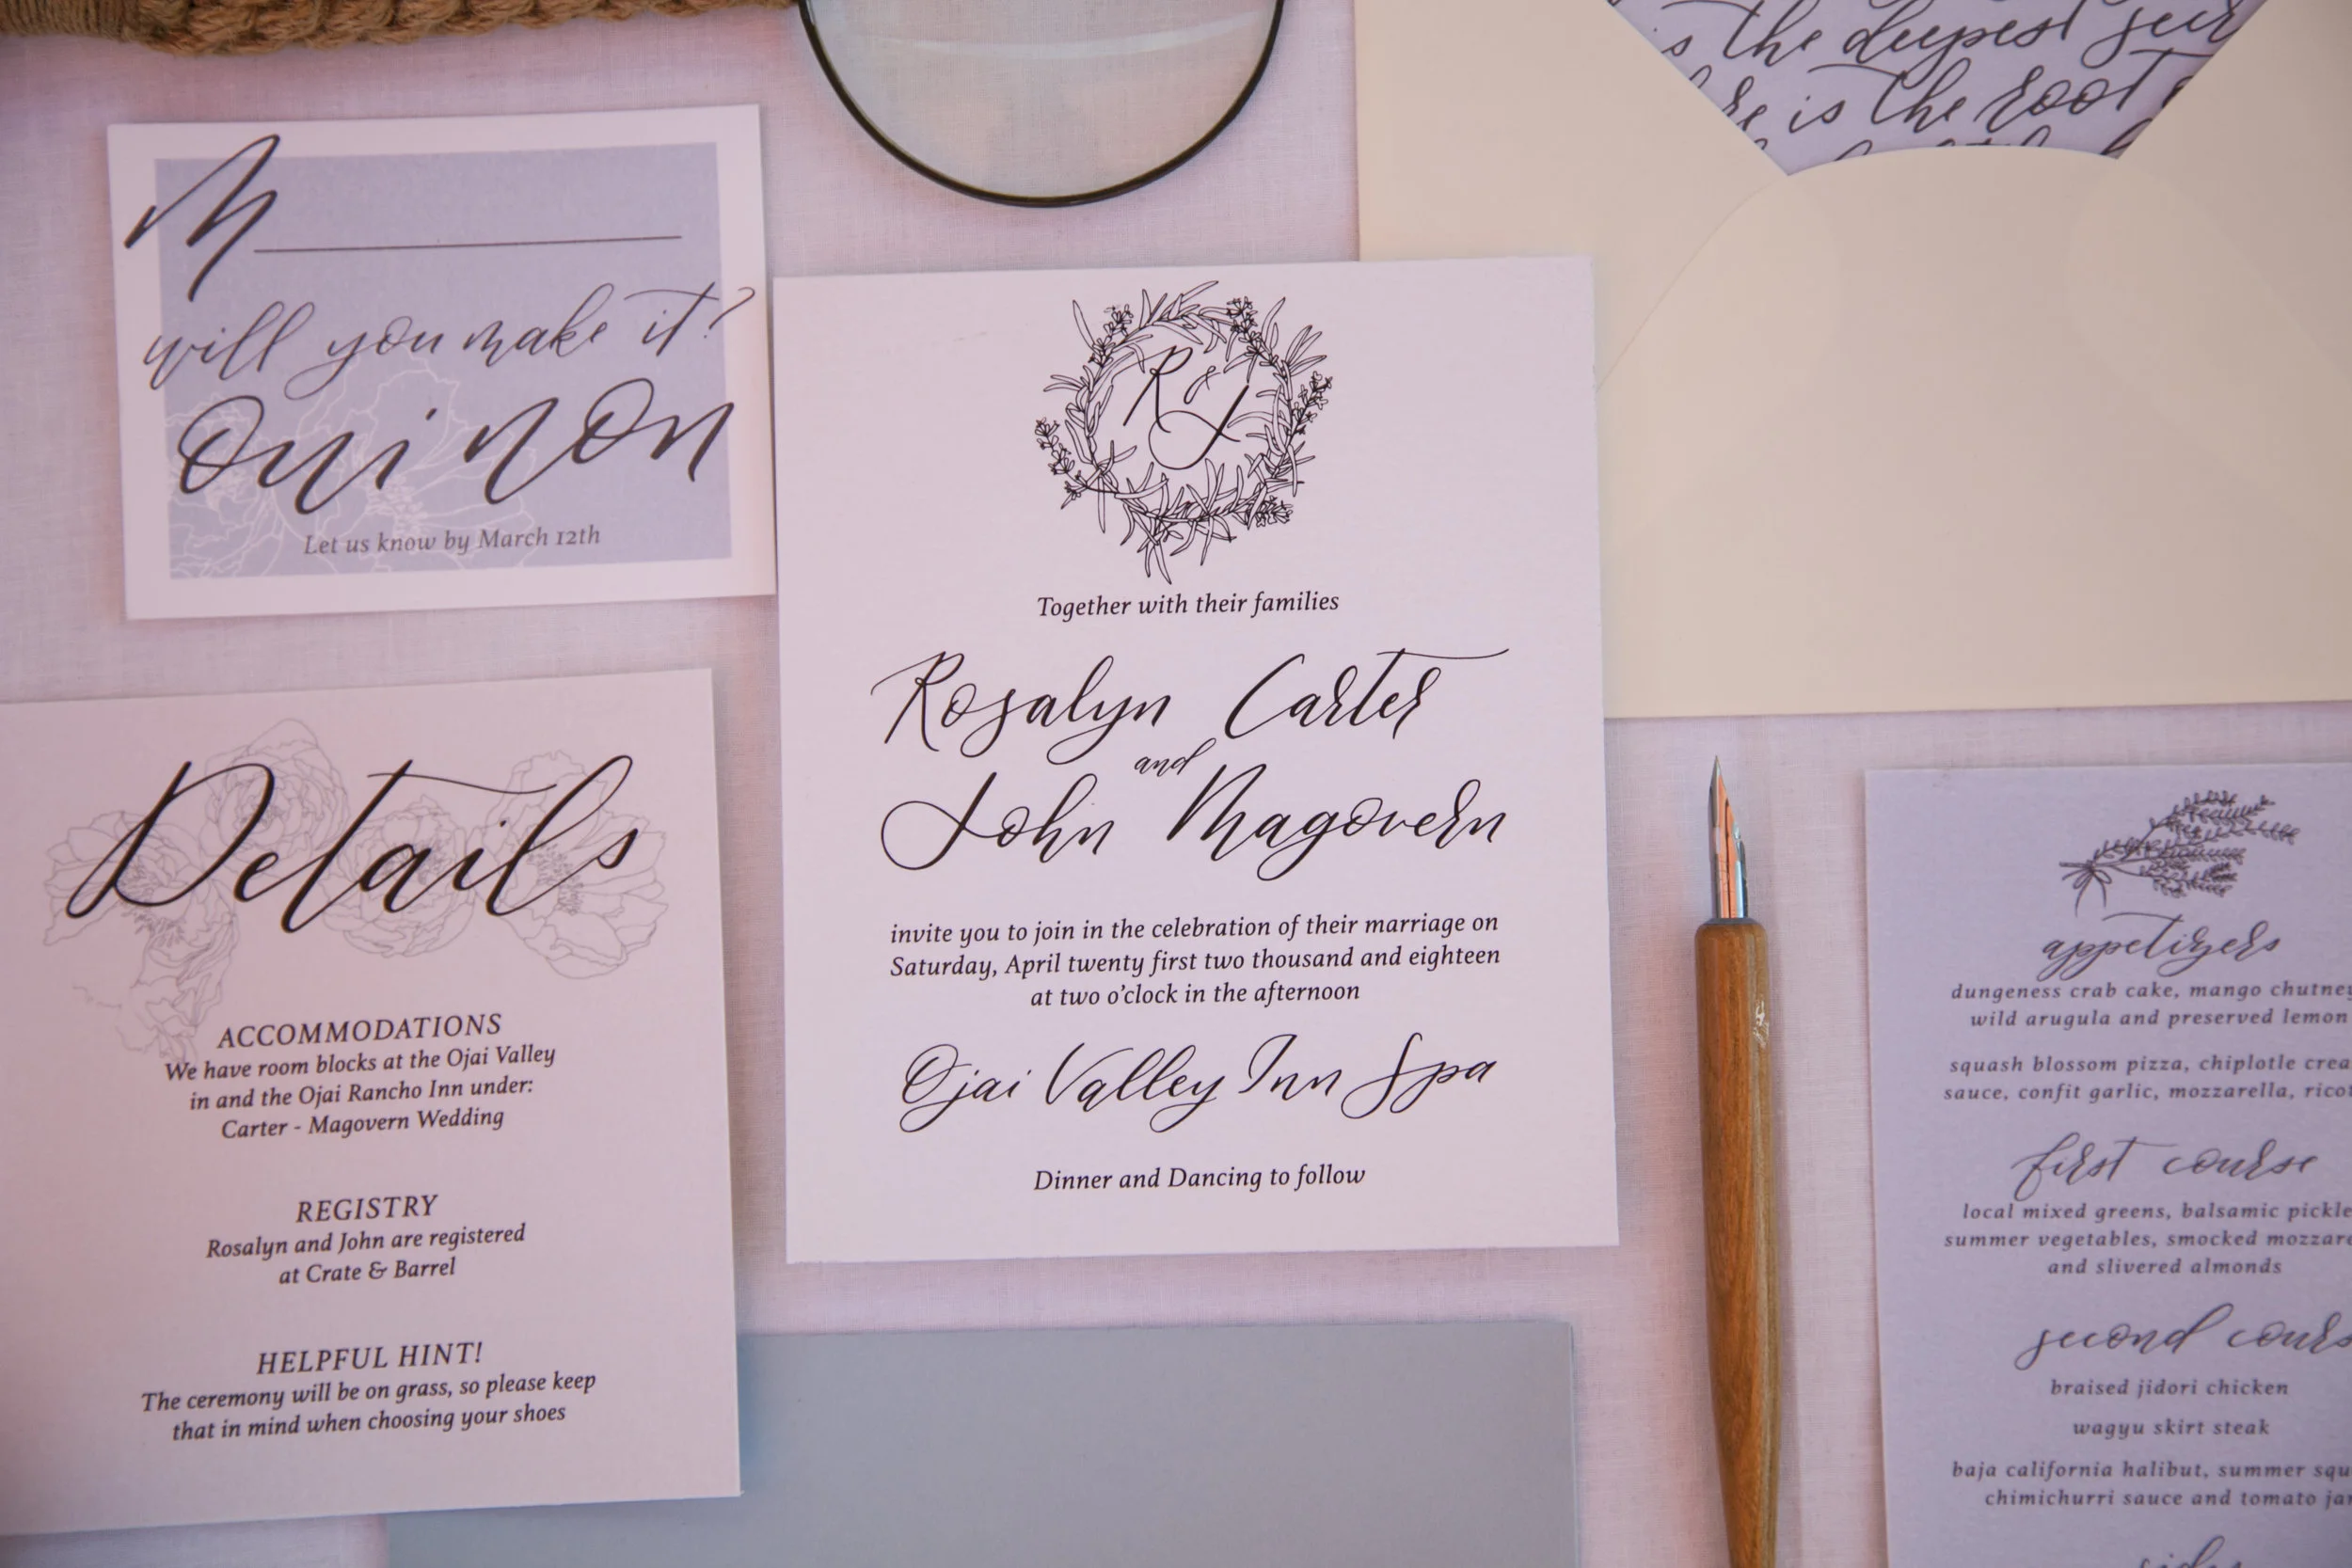 is the deepest
is the root
M
will you make it?
Oui non
Let us know by March 12th
R & J
Together with their families
Rosalyn Carter
and
John Magovern
invite you to join in the celebration of their marriage on
Saturday, April twenty first two thousand and eighteen
at two o'clock in the afternoon
Ojai Valley Inn Spa
Dinner and Dancing to follow
Details
ACCOMMODATIONS
We have room blocks at the Ojai Valley
in and the Ojai Rancho Inn under:
Carter - Magovern Wedding
REGISTRY
Rosalyn and John are registered
at Crate & Barrel
HELPFUL HINT!
The ceremony will be on grass, so please keep
that in mind when choosing your shoes
appetizers
dungeness crab cake, mango chutney
wild arugula and preserved lemon
squash blossom pizza, chiplotle crea
sauce, confit garlic, mozzarella, rico
first course
local mixed greens, balsamic pickle
summer vegetables, smocked mozzare
and slivered almonds
second cours
braised jidori chicken
wagyu skirt steak
baja california halibut, summer squ
chimichurri sauce and tomato ja